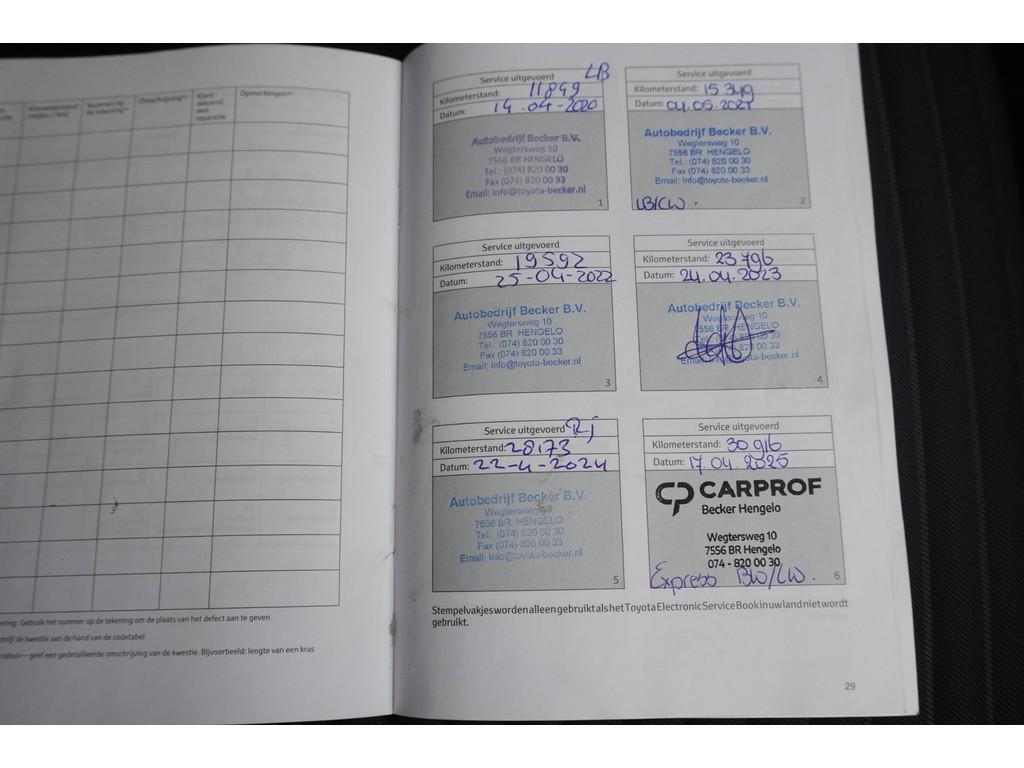 Opmerkingen
Service uitgevoerd LB
Kilometerstand: 11849
Datum: 14-04-2020
Autobedrijf Becker B.V.
Wegtersweg 10
7556 BR HENGELO
Tel.: (074) 820 00 30
Fax (074) 820 00 33
Email: Info@toyota-becker.nl
1
Service uitgevoerd
Kilometerstand: 15349
Datum: 04.05.2021
Autobedrijf Becker B.V.
Wegtersweg 10
7556 BR HENGELO
Tel.: (074) 820 00 30
Fax (074) 820 00 33
Email: Info@toyota-becker.nl
LB/CW.
2
Service uitgevoerd
Kilometerstand: 19592
Datum: 25-04-2022
Autobedrijf Becker B.V.
Wegtersweg 10
7556 BR HENGELO
Tel.: (074) 820 00 30
Fax (074) 820 00 33
Email: Info@toyota-becker.nl
3
Service uitgevoerd
Kilometerstand: 23796
Datum: 24.04.2023
Autobedrijf Becker B.V.
Wegtersweg 10
7556 BR HENGELO
(074) 820 00 30
820 00 33
Email: toyota-becker.nl
4
Service uitgevoerd Rj
Kilometerstand: 28173
Datum: 22-4-2024
Autobedrijf Becker B.V.
Wegtersweg 10
7556 BR HENGELO
Tel.: (074) 820 00 30
Fax (074) 820 00 33
Email: Info@toyota-becker.nl
5
Service uitgevoerd
Kilometerstand: 30916
Datum: 17.04.2025
CP CARPROF
Becker Hengelo
Wegtersweg 10
7556 BR Hengelo
074 - 820 00 30
Express BW/CW.
6
Stempelvakjes worden alleen gebruikt als het Toyota Electronic Service Book in uw land niet wordt
gebruikt.
ening: Gebruik het nummer op de tekening om de plaats van het defect aan te geven
chrijf de kwestie aan de hand van de codetabel
tekst> – geef een gedetailleerde omschrijving van de kwestie. Bijvoorbeeld: lengte van een kras
29